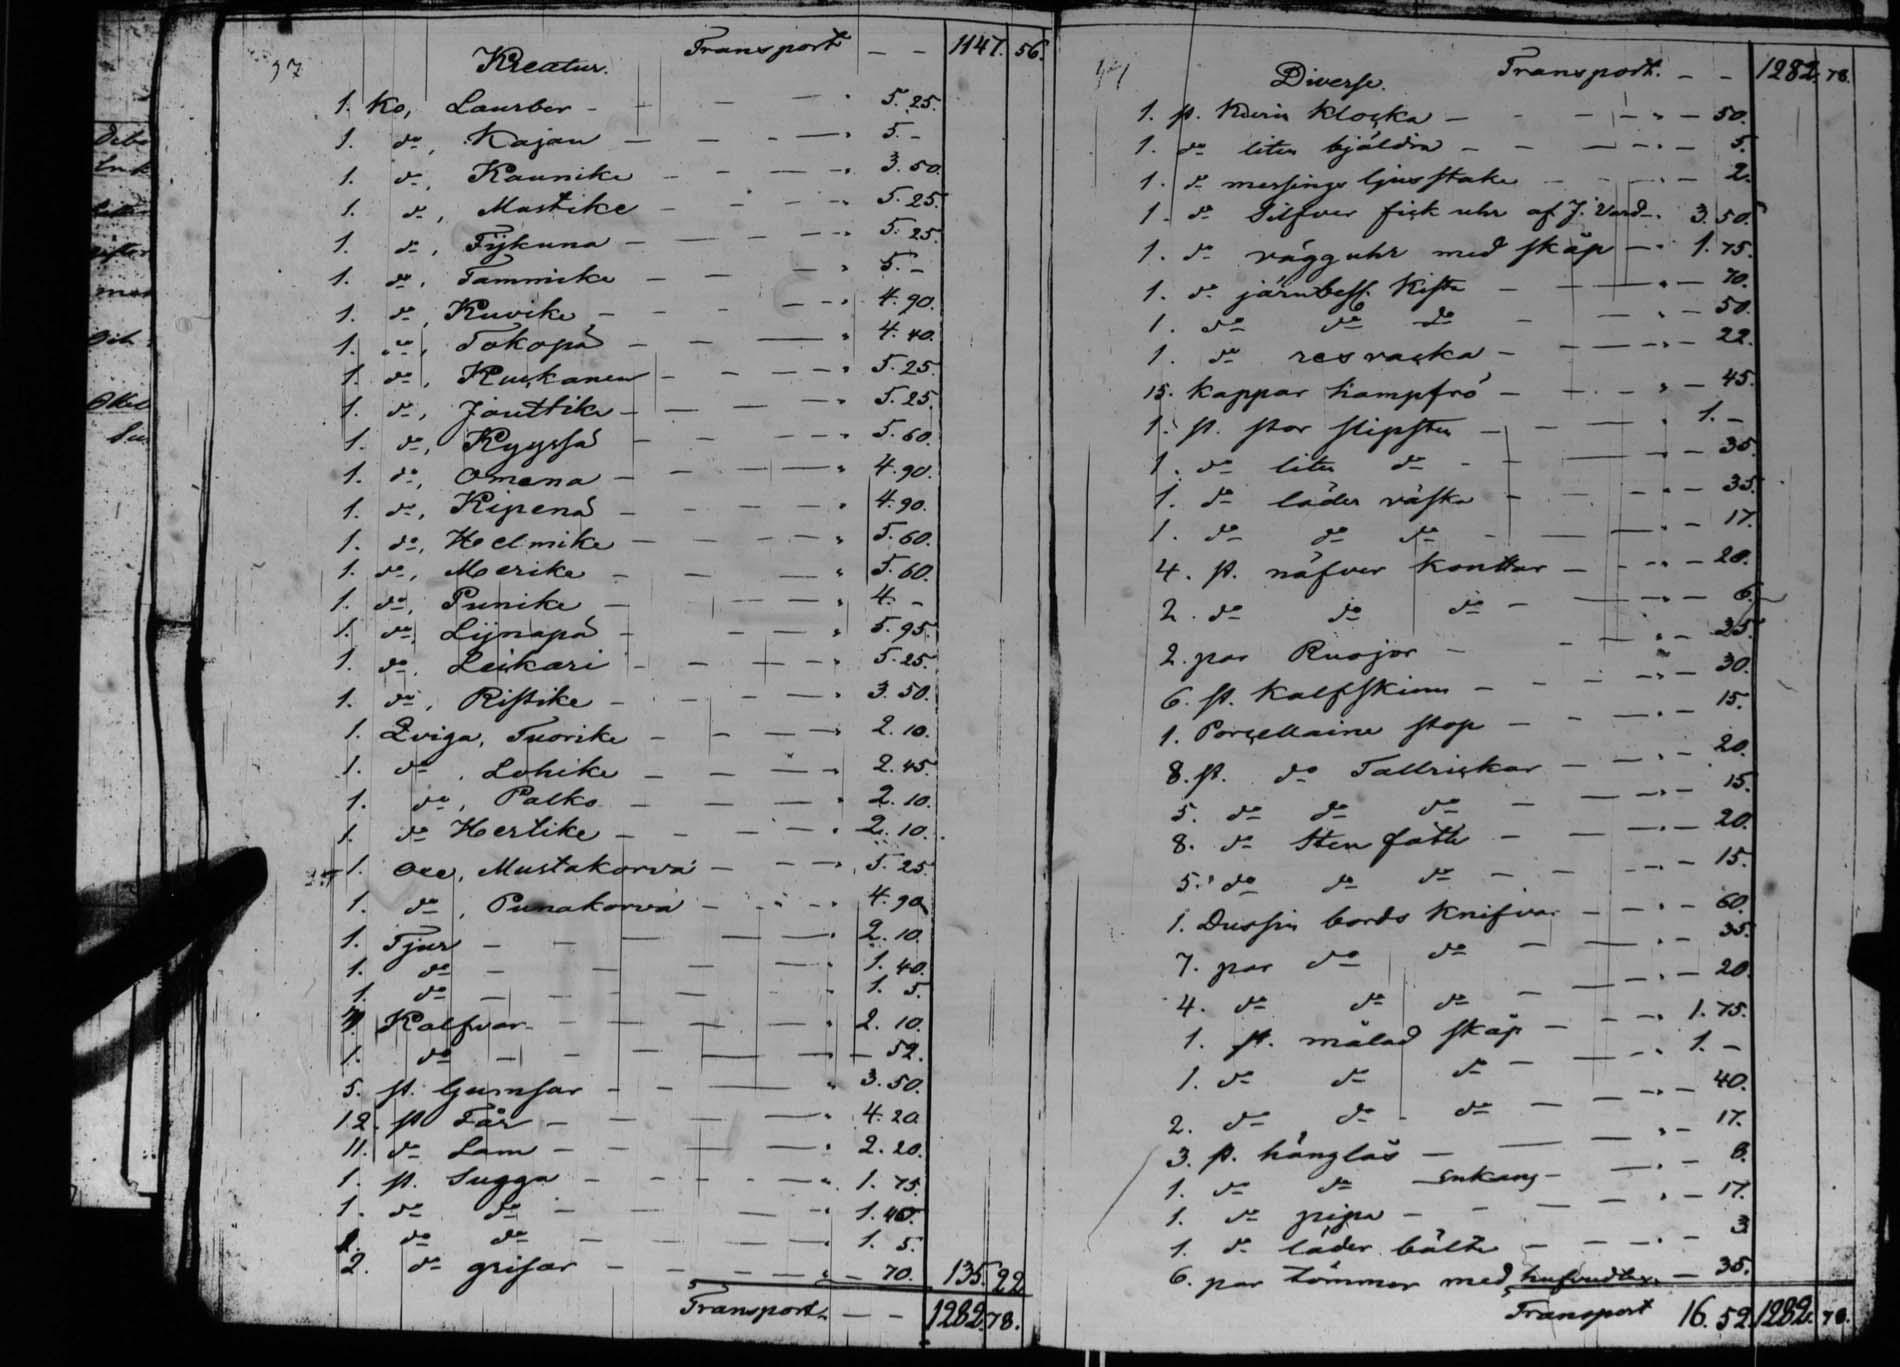 Transport — — 1147. 56.
Kreatur.
1. Ko, Laurber - - — - 5. 25.
1. do, Kajan — — — — " 5. -
1. do, Kaunike - - — — " 3. 50.
1. do, Mastike — - - — " 5. 25.
1. do, Fijkuna — - — — " 5. 25.
1. do, Tammike - - — - " 5. -
1. do, Kuvike, - - — — 4. 90.
1. do, Tokopä — - — — " 4. 40.
1. do, Kuckanen - - — — " 5. 25.
1. do, Jouttike — — — — " 5. 25.
1. do, Kyyssä - - — — " 5. 60.
1. do, Omena — - — — " 4. 90.
1. do, Kipenä - - — - " 4. 90.
1. do, Helmike — - — — " 5. 60.
1. do, Merike - - — — " 5. 60.
1. do, Punike — - — — " 4. -
1. do, Lijnapä - - — — " 5. 95.
1. do, Leikari - - — — " 5. 25.
1. do, Ristike - - — — " 3. 50.
1. Qviga, Tuorike - - — — 2. 10.
1. do, Lohike — - — — " 2. 45.
1. do, Palko — - — — " 2. 10.
1. do Hertike — - — — " 2. 10.
1. Oxe, Mustakorva — - — — " 5. 25.
1. do, Punakorva - - - — 4. 90
1. Tjur — - — — — " 2. 10.
1. do - — — — " 1. 40.
1. do - — — — " 1. 5.
4 Kalfvar - — — — " 2. 10.
1. do - — — — — " — 52.
5. st. Gumsar - - — — " 3. 50.
12. st Får — - — — " 4. 20.
11. do Lam — - — — " 2. 20.
1. st. Sugga - - - — " 1. 75.
1. do do — - — — " 1. 40.
1. do do — - — — " 1. 5.
2. do grisar - - — — " — 70. 135. 22
Transport. — — 1282. 78.
Transport. — — 1282. 78.
Diverse.
1. st. Klocka — - - — " — 50.
1. do liten bjäldra — — — " — 5.
1. do messings ljusstake — - - " — 2.
1. do Silfver fick uhr af J. Vard — " 3. 50.
1. do vägg uhr med skåp — " 1. 75.
1. do järnbesl. Kista — - — — " — 70.
1. do do do — - " — 50.
1. do resvacka — - — — " — 22.
15. Kappar hampfrö — - - — " — 45.
1. st. stor slipsten — - — — " 1. -
1. do liten do - - — — " — 35.
1. do läder väska — - — — " — 35.
1. do do do - — — " — 17.
4. st. näfver konttar — - — " — 20.
2. do do do — — — " — 6.
2. par Ruojor — - — — " — 25.
6. st. Kalfskinn — - - — " — 30.
1. Porcellaine stop - - — " — 15.
8. st. do Tallrickar — - — " — 20.
5. do do do — — " — 15.
8. do Sten fatt — - — " — 20.
5. do do do — - — " — 15.
1. Dussin bords Knifvar — - — " — 60.
7. par do do — — — " — 35.
4. do do do — — — " — 20.
1. st. målad skåp — - — " 1. 75.
1. do do do — — — " 1. -
2. do do do — — — " — 40.
3. st. hänglås — — — " — 17.
1. do do — — " — 8.
1. do pipa — - — — " — 17.
1. do läder bälte — - — — " — 3
6. par tömmar med — 35.
Transport 16. 52 1282. 78.